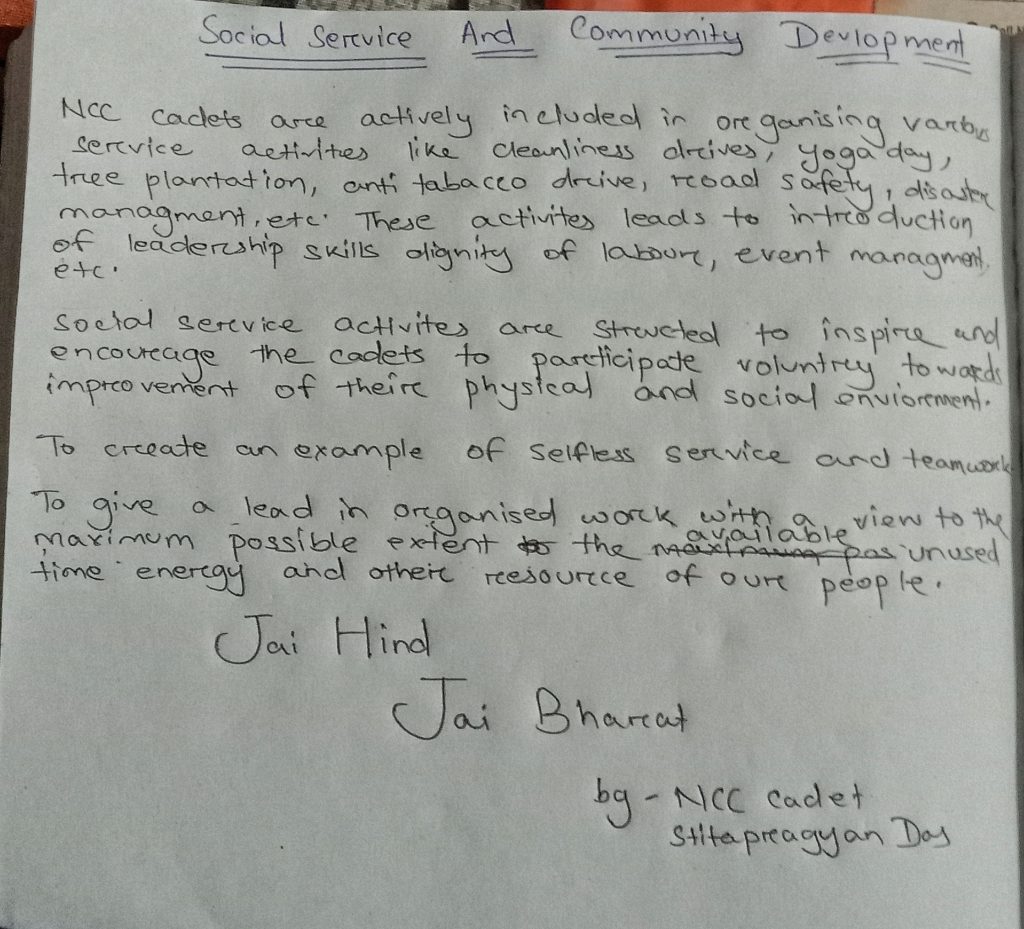 Social Service And Community Devlopment
NCC cadets are actively included in organising various
service activities like cleanliness drives, yoga day,
tree plantation, anti tabacco drive, road safety, disaster
managment, etc. These activites leads to introduction
of leadership skills dignity of labour, event managment,
etc.
Social service activites are structed to inspire and
encourage the cadets to participate voluntry towards
improvement of their physical and social enviorement.
To create an example of selfless service and teamwork
To give a lead in organised work with a view to the
maximum possible extent the available unused
time energy and other resource of our people.
Jai Hind
Jai Bharat
by - NCC cadet
Stitapragyan Das